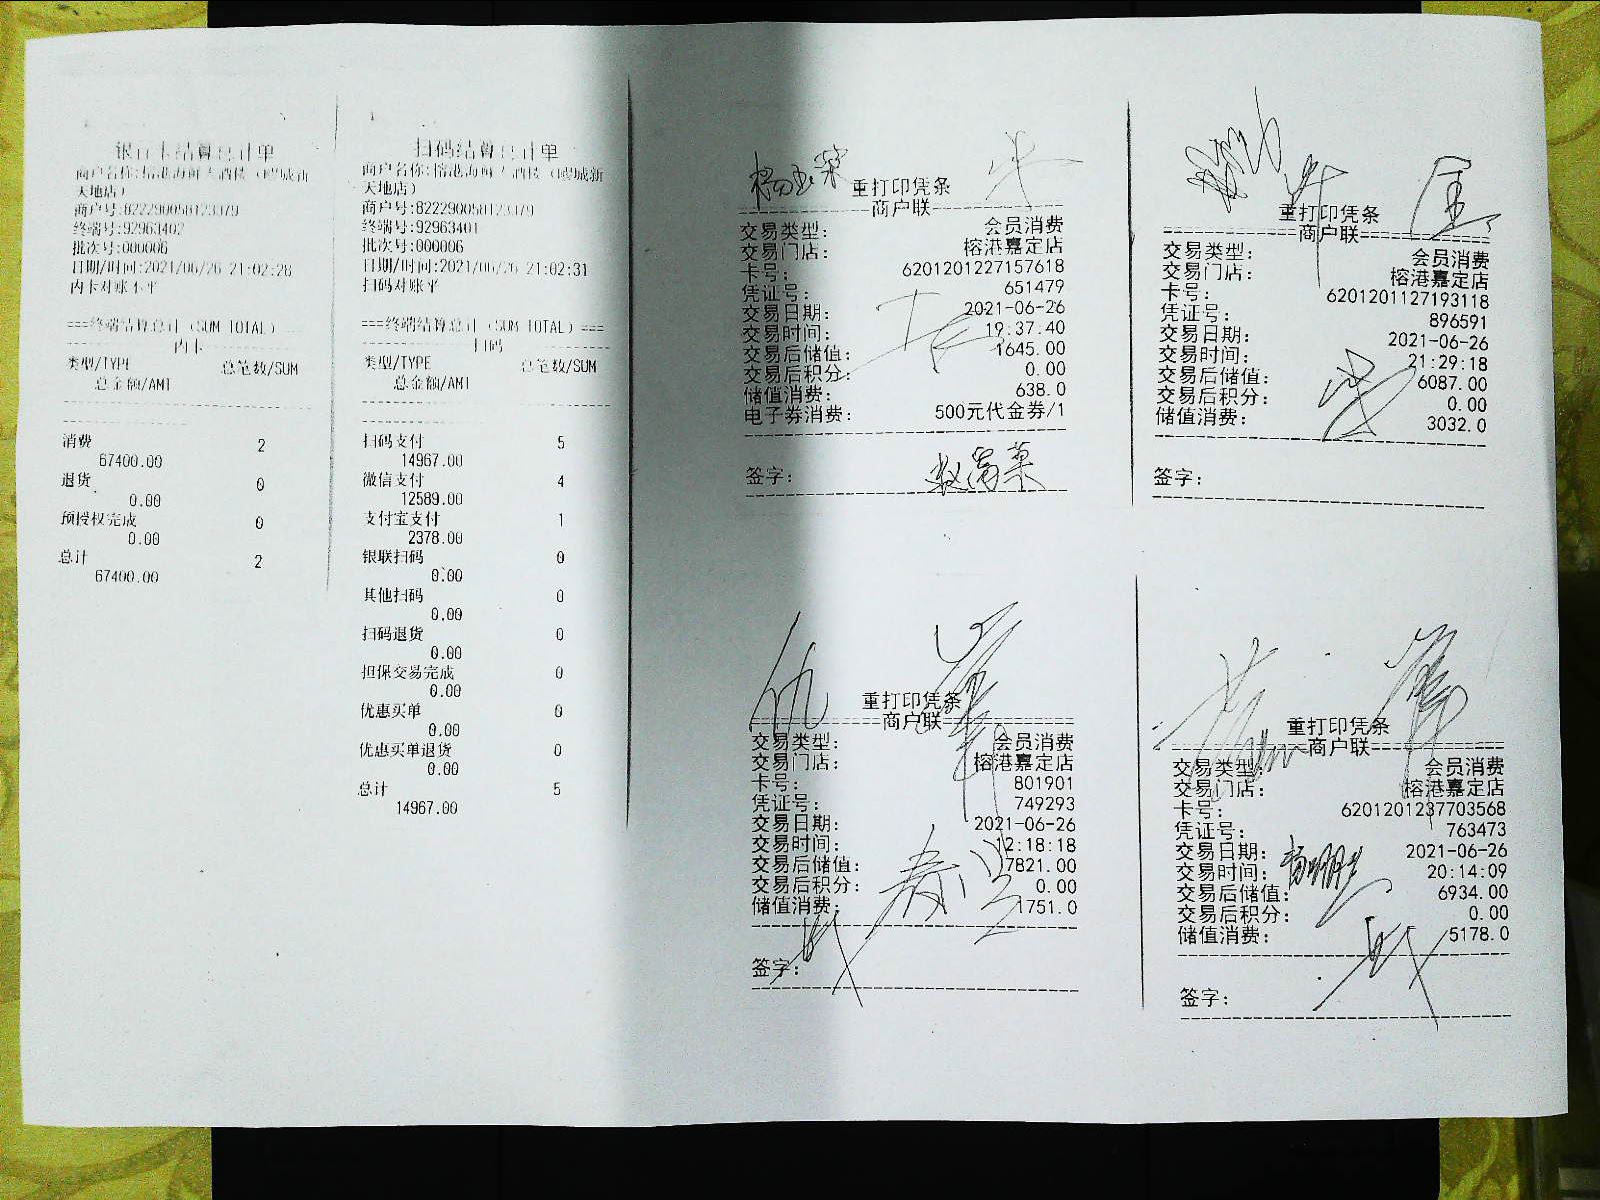 银行卡结算总计单
商户名称:榕港海鲜大酒楼（嘐城新
天地店）
商户号:822290058123079
终端号:92963402
批次号:000006
日期/时间:2021/06/26 21:02:28
内卡对账不平
===终端结算总计（SUM TOTAL）
内卡
类型/TYPE 总笔数/SUM
总金额/AMT
消费 2
67400.00
退货 0
0.00
预授权完成 0
0.00
总计 2
67400.00
扫码结算总计单
商户名称:榕港海鲜大酒楼（嘐城新
天地店）
商户号:822290058123079
终端号:92963401
批次号:000006
日期/时间:2021/06/26 21:02:31
扫码对账平
===终端结算总计（SUM TOTAL）===
扫码
类型/TYPE 总笔数/SUM
总金额/AMT
扫码支付 5
14967.00
微信支付 4
12589.00
支付宝支付 1
2378.00
银联扫码 0
0.00
其他扫码 0
0.00
扫码退货 0
0.00
担保交易完成 0
0.00
优惠买单 0
0.00
优惠买单退货 0
0.00
总计 5
14967.00
重打印凭条
商户联
交易类型: 会员消费
交易门店: 榕港嘉定店
卡号: 6201201227157618
凭证号: 651479
交易日期: 2021-06-26
交易时间: 19:37:40
交易后储值: 1645.00
交易后积分: 0.00
储值消费: 638.0
电子券消费: 500元代金券/1
签字:
重打印凭条
商户联
交易类型: 会员消费
交易门店: 榕港嘉定店
卡号: 6201201127193118
凭证号: 896591
交易日期: 2021-06-26
交易时间: 21:29:18
交易后储值: 6087.00
交易后积分: 0.00
储值消费: 3032.0
签字:
重打印凭条
商户联
交易类型: 会员消费
交易门店: 榕港嘉定店
卡号: 801901
凭证号: 749293
交易日期: 2021-06-26
交易时间: 12:18:18
交易后储值: 7821.00
交易后积分: 0.00
储值消费: 1751.0
签字:
重打印凭条
商户联
交易类型: 会员消费
交易门店: 榕港嘉定店
卡号: 6201201237703568
凭证号: 763473
交易日期: 2021-06-26
交易时间: 20:14:09
交易后储值: 6934.00
交易后积分: 0.00
储值消费: 5178.0
签字: